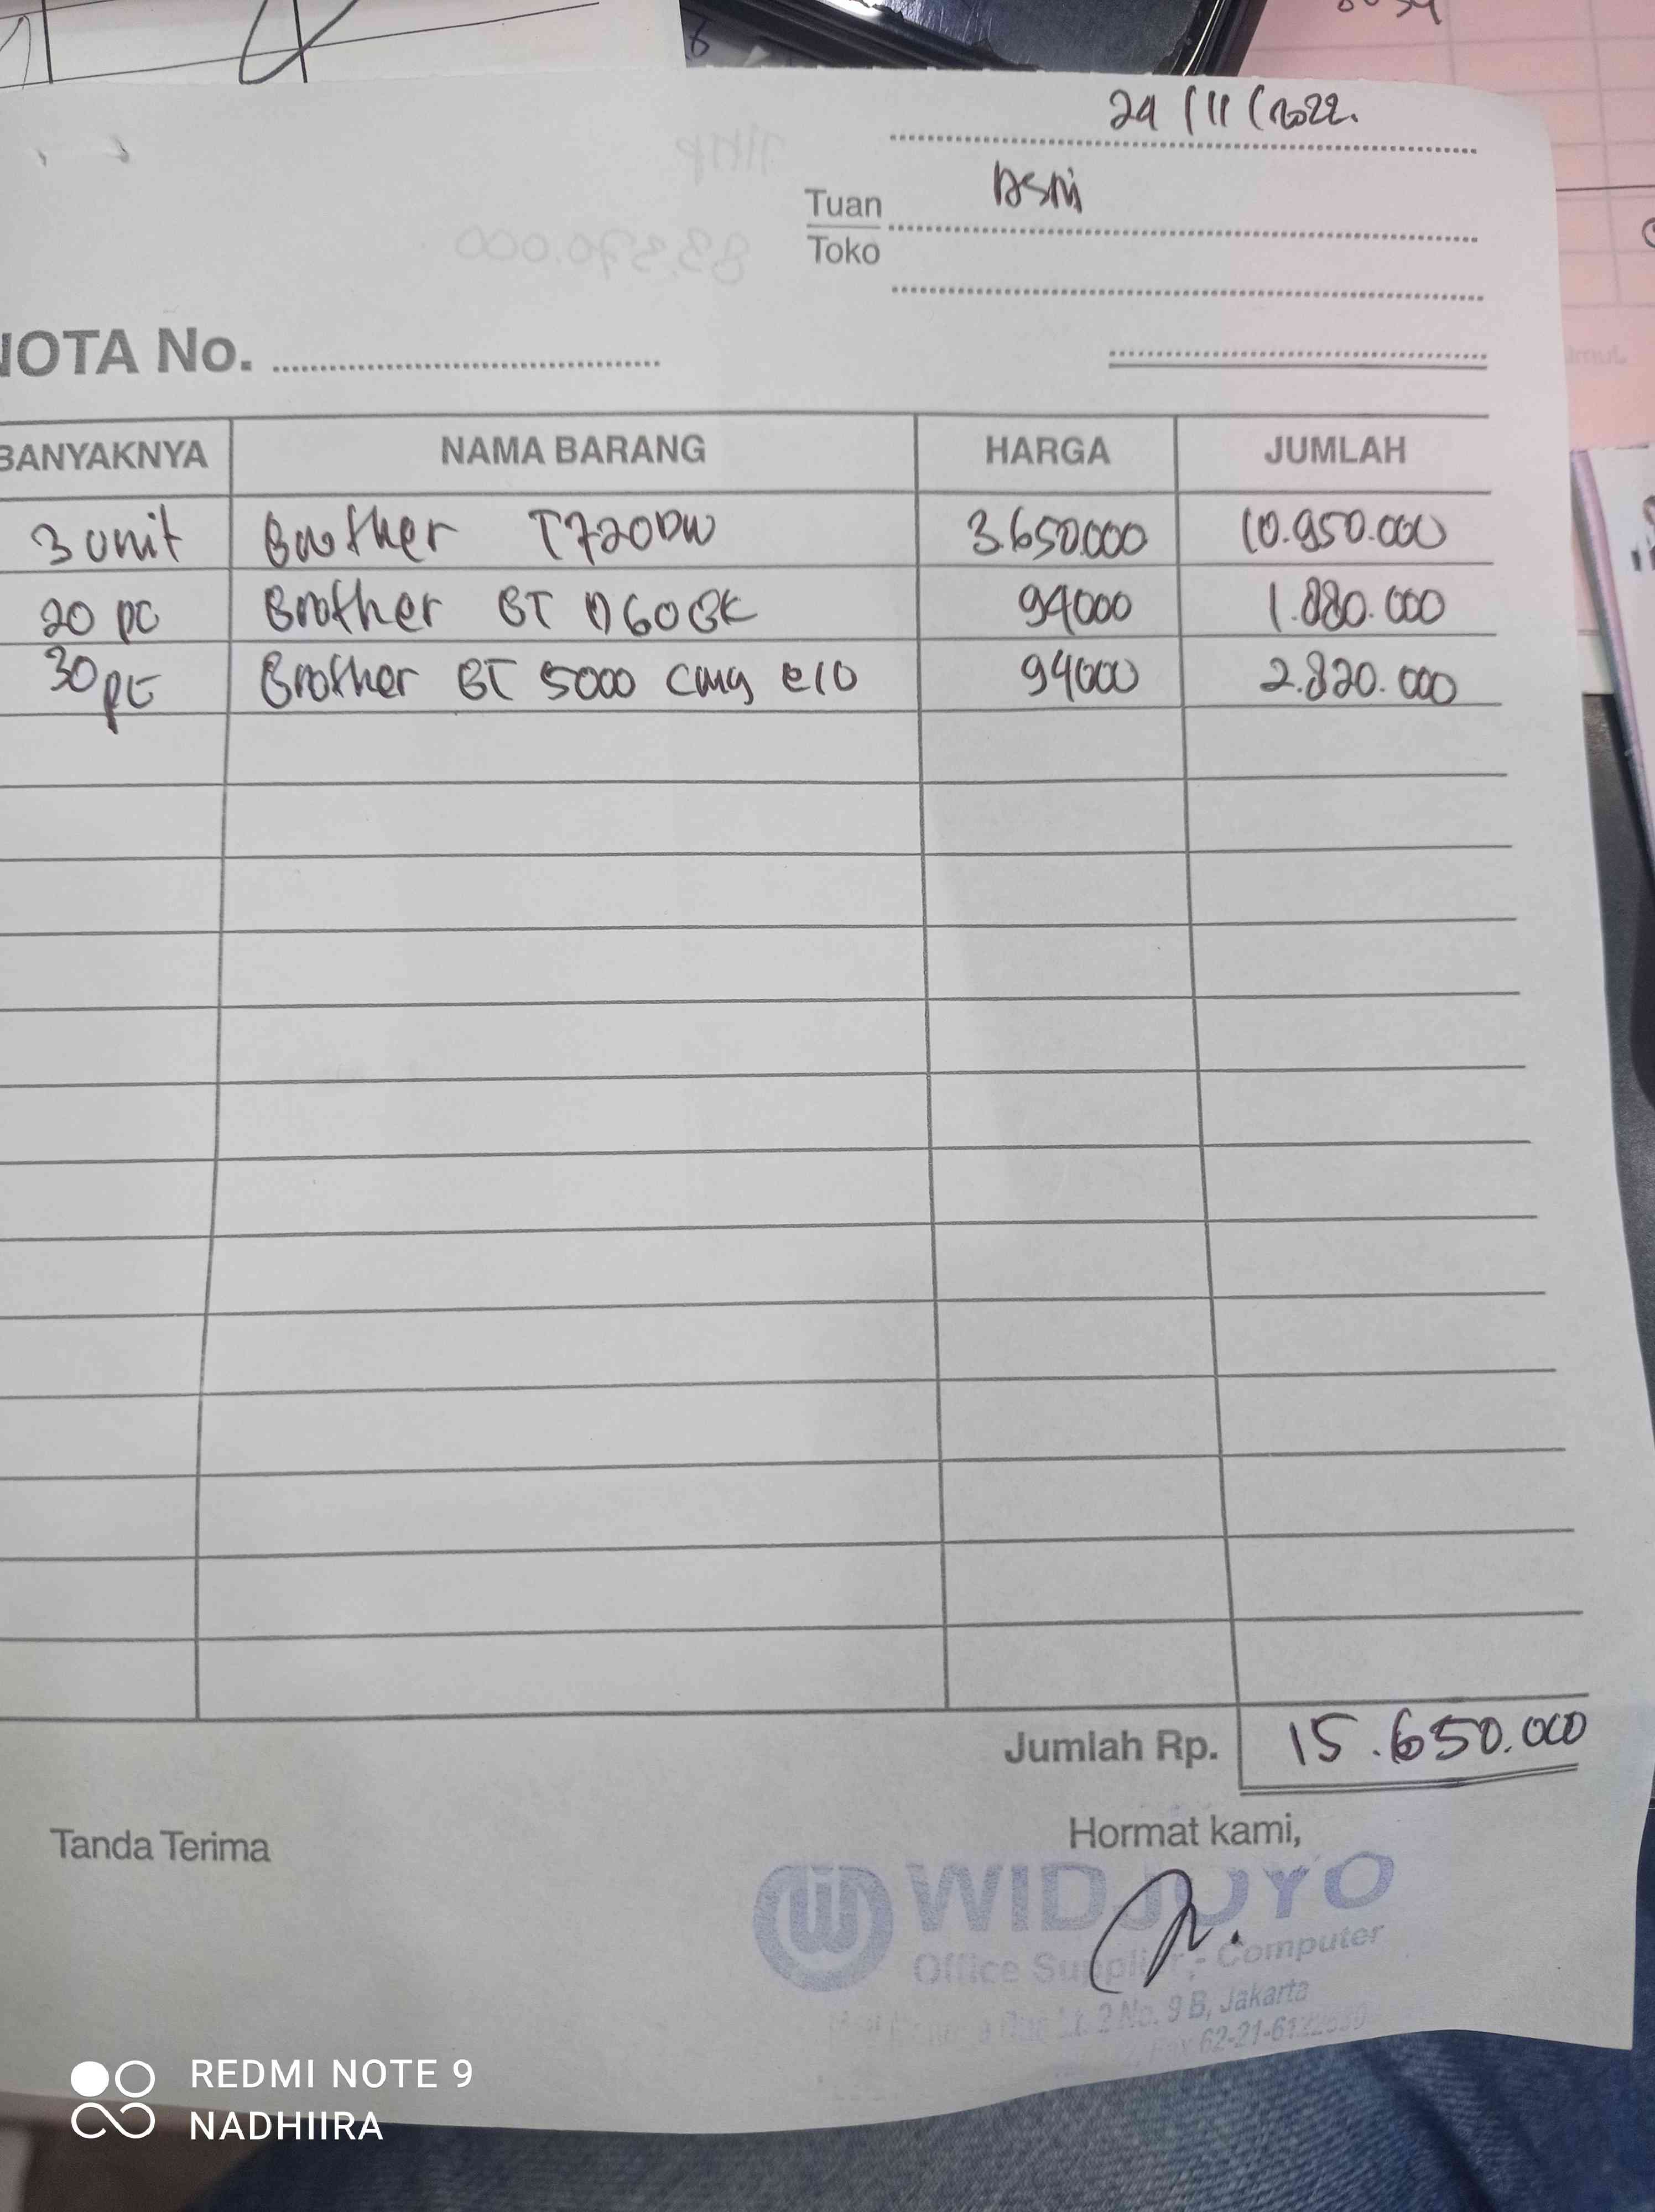 24/11/2022.
Tuan
Toko
NOTA No.
BANYAKNYA NAMA BARANG HARGA JUMLAH
3 unit Brother T720DW 3.650.000 10.950.000
20 pc Brother BT D60BK 94000 1.880.000
30 pc Brother BT 5000 cmy @10 94000 2.820.000
Jumlah Rp. 15.650.000
Tanda Terima Hormat kami,
WIDJOYO
Office Supplier - Computer
Lt. 2 No. 9 B, Jakarta
62-21-6122
REDMI NOTE 9
NADHIIRA